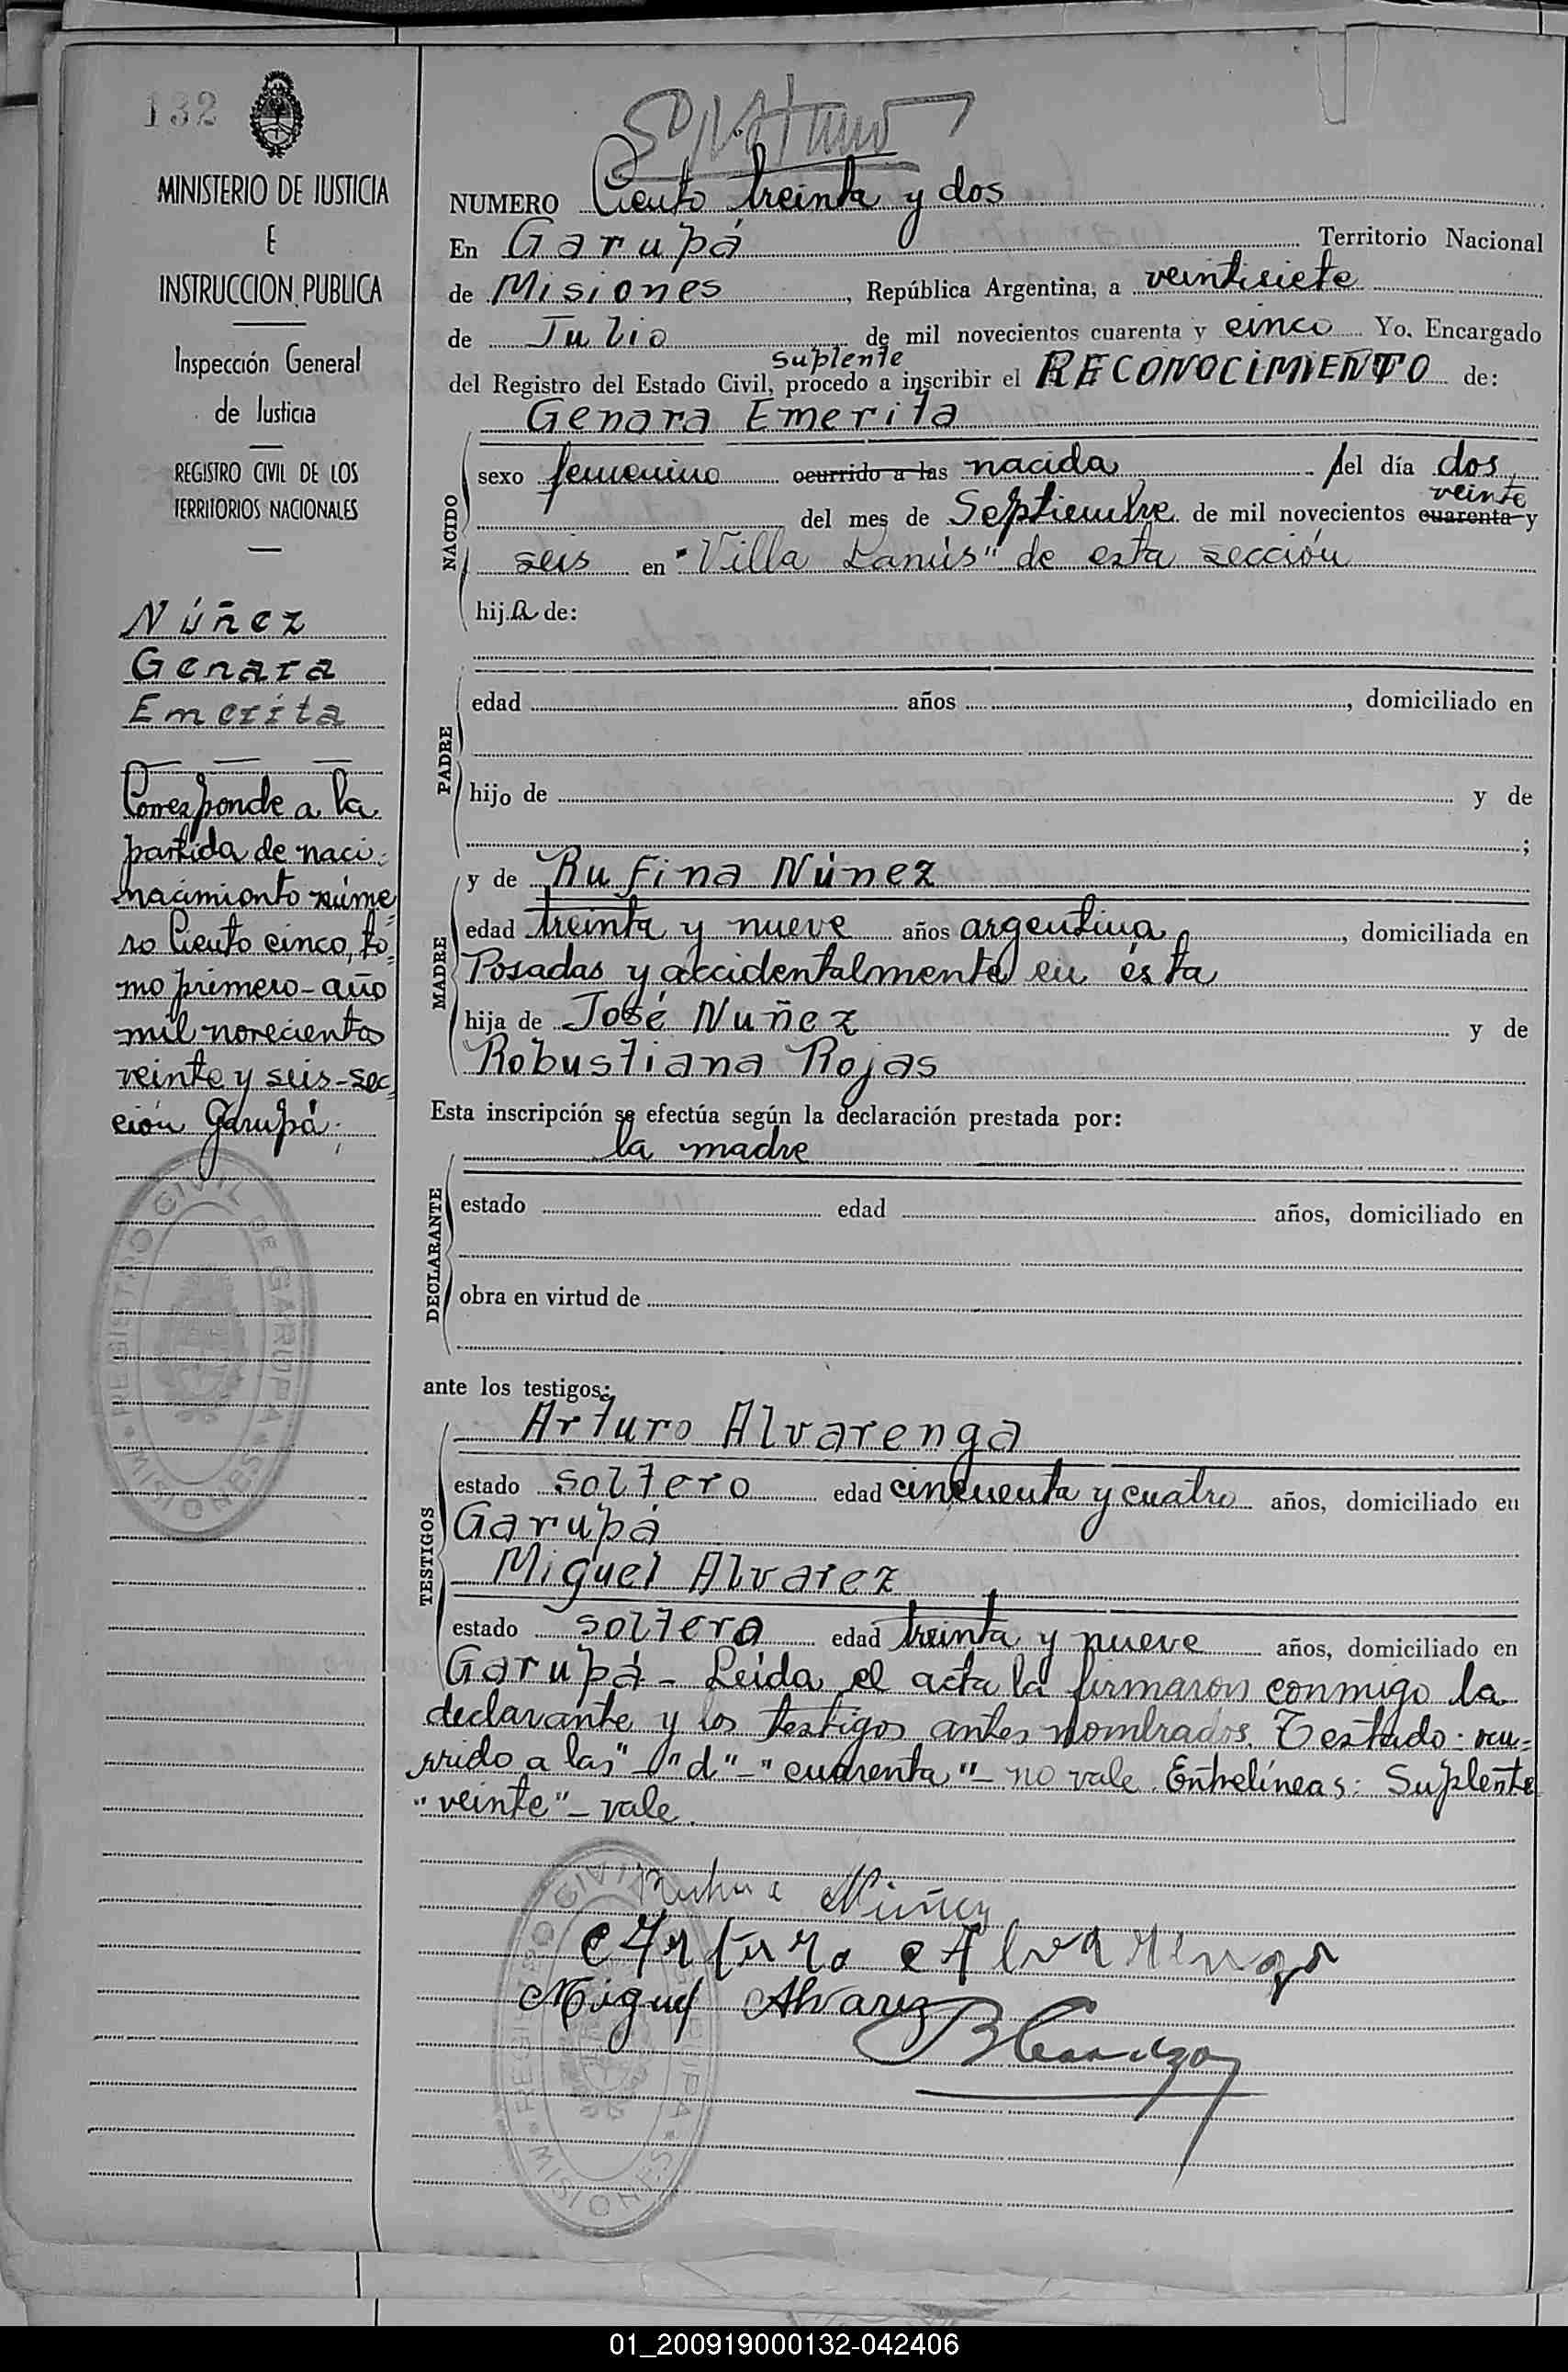 132
MINISTERIO DE JUSTICIA
E
INSTRUCCION PUBLICA
Inspección General
de Justicia
REGISTRO CIVIL DE LOS
TERRITORIOS NACIONALES
Núñez
Genara
Emerita
Corresponde a la
partida de naci-
nacimiento núme
ro Ciento cinco, to-
mo primero - año
mil novecientos
veinte y seis - sec
ción Garupá;
REGISTRO CIVIL DE GARUPA
MISIONES
NUMERO Ciento treinta y dos
En Garupá Territorio Nacional
de Misiones, República Argentina, a veintisiete
de Julio de mil novecientos cuarenta y cinco Yo, Encargado
Suplente
del Registro del Estado Civil, procedo a inscribir el RECONOCIMIENTO de:
Genara Emerita
NACIDO
sexo femenino ocurrido a las nacida del día dos
veinte
del mes de Septiembre de mil novecientos cuarenta y
seis en "Villa Lanús" de esta sección
hija de:
PADRE
edad años , domiciliado en
hijo de y de
;
MADRE
y de Rufina Núnez
edad treinta y nueve años argentina, domiciliada en
Posadas y accidentalmente en ésta
hija de José Nuñez y de
Robustiana Rojas
Esta inscripción se efectúa según la declaración prestada por:
la madre
DECLARANTE
estado edad años, domiciliado en
obra en virtud de
ante los testigos:
TESTIGOS
Arturo Alvarenga
estado soltero edad cincuenta y cuatro años, domiciliado en
Garupá
Miguel Alvarez
estado soltero edad treinta y nueve años, domiciliado en
Garupá - Leida el acta la firmaron conmigo la
declarante y los testigos antes nombrados. Testado: ocu=
rrido a las" - "d" - "cuarenta" - no vale. Entrelíneas: Suplente
"veinte" - vale.
Núñez
Arturo Alvarenga
Miguel Alvarez
REGISTRO CIVIL
MISIONES
01_200919000132-042406